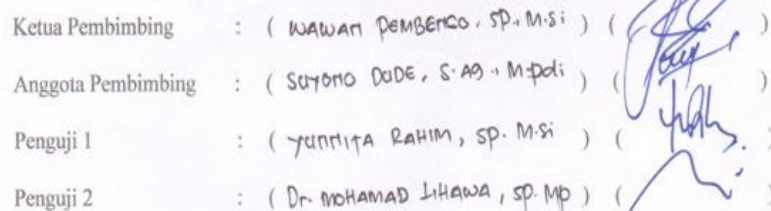 Ketua Pembimbing : ( WAWAN PEMBENGO, SP., M.Si ) ( )
Anggota Pembimbing : ( SUYONO DUDE, S.Ag., M.Pdi ) ( )
Penguji 1 : ( YUNNITA RAHIM, SP. M.Si ) ( )
Penguji 2 : ( Dr. MOHAMAD LIHAWA, SP. MP ) ( )